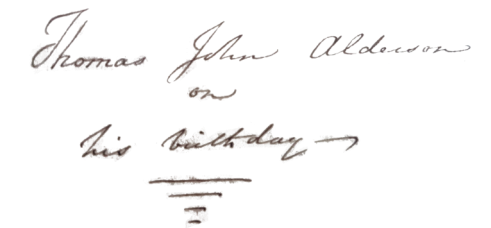 Thomas John Alderson
on
his birthday —